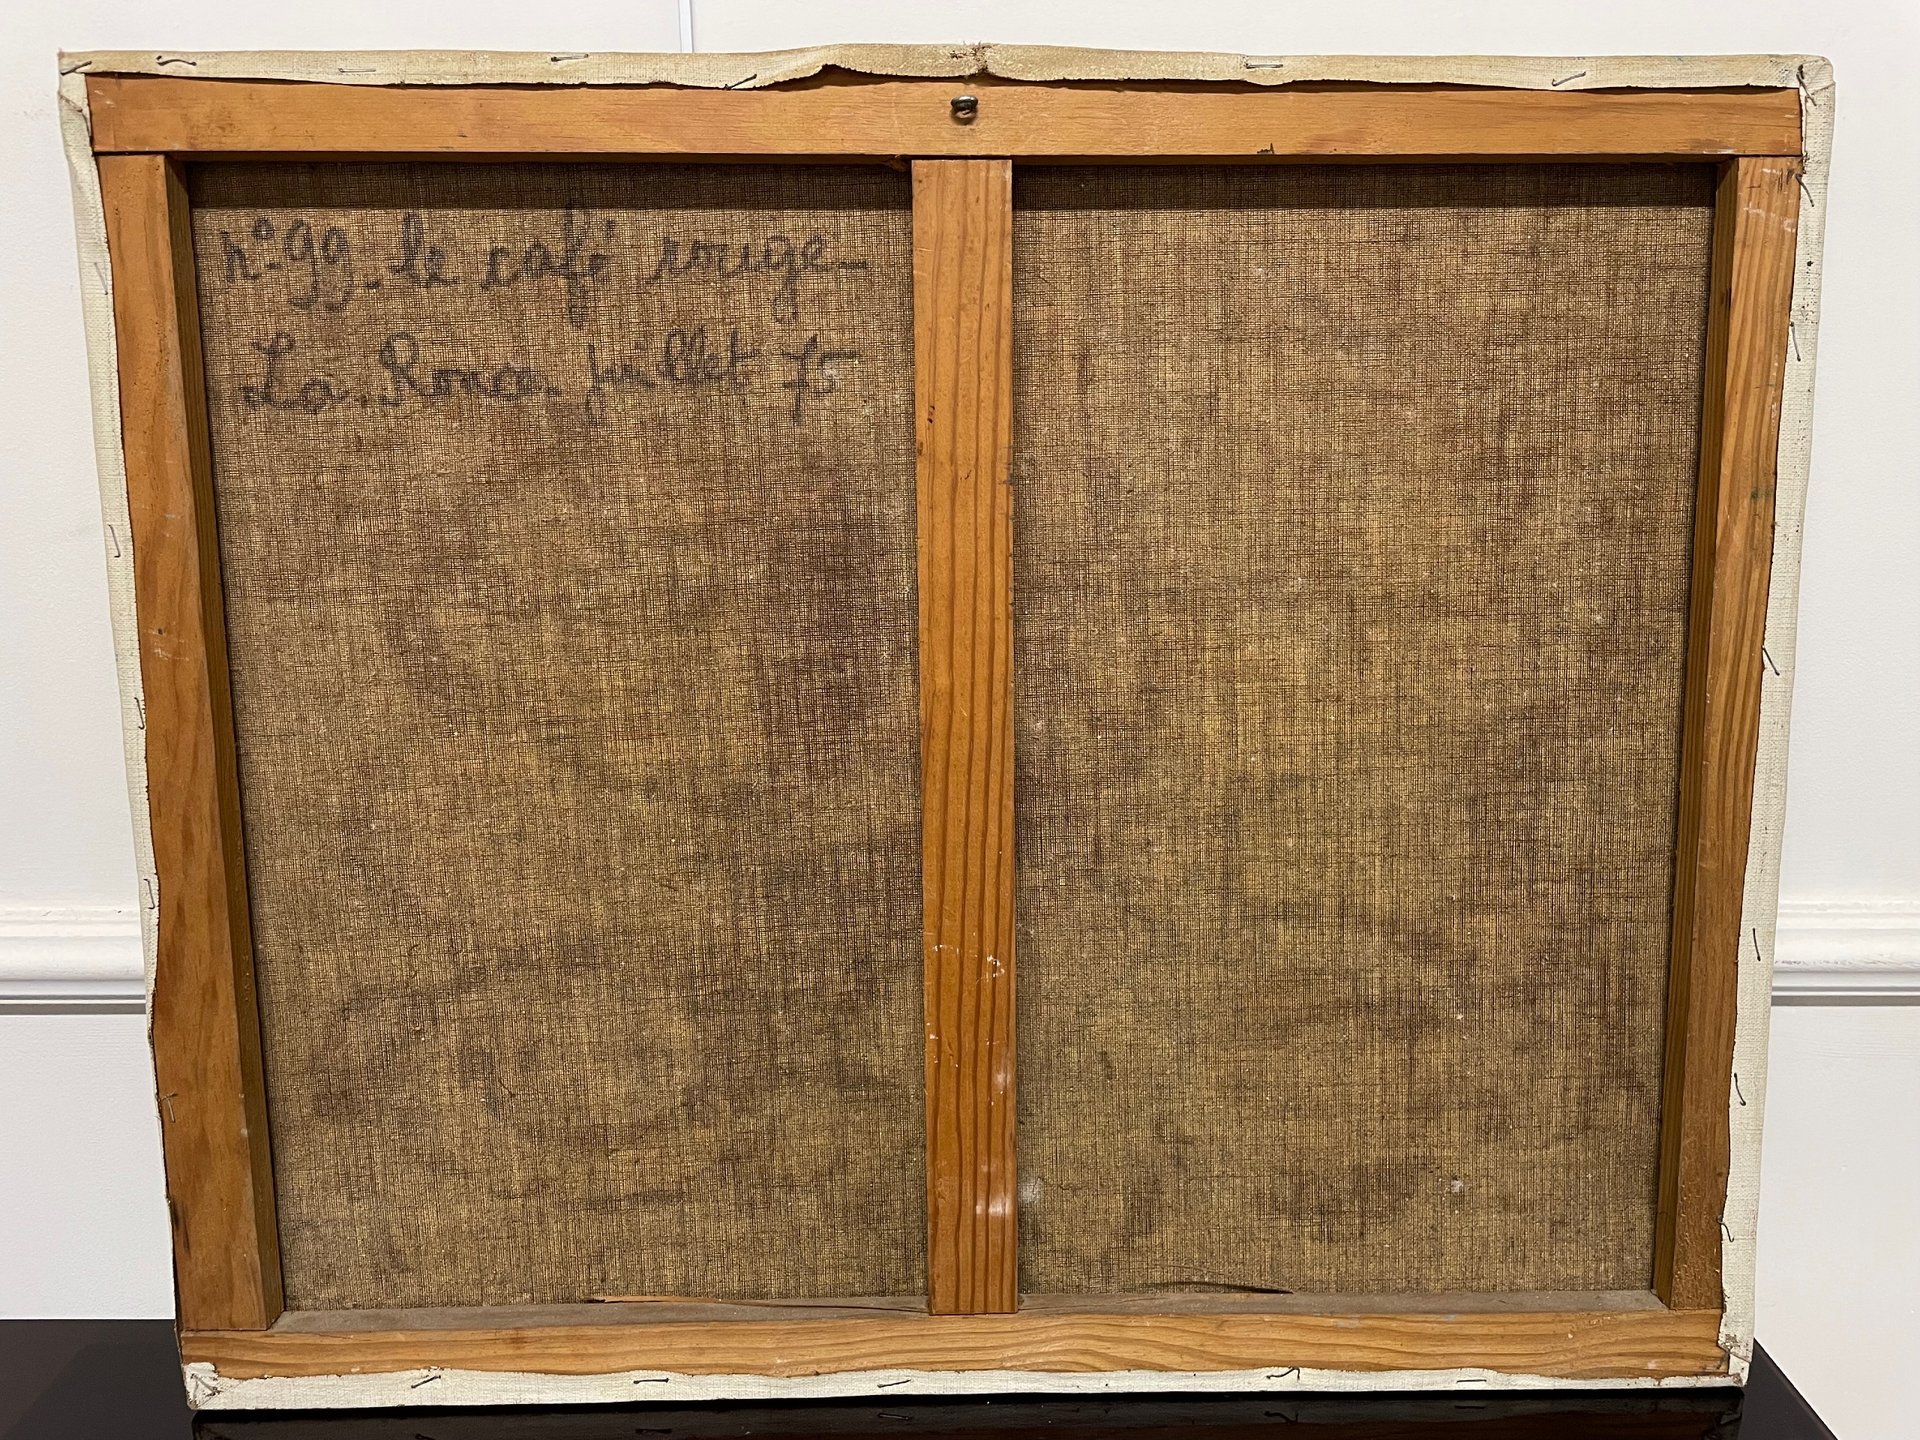 n° 99. le café rouge_
La Ronce. juillet 75